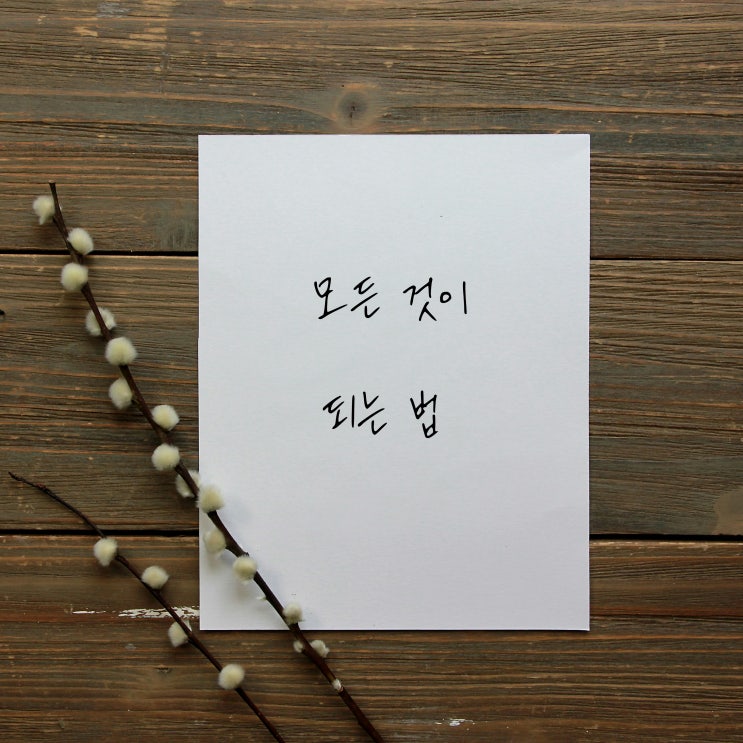 모든 것이
되는 법